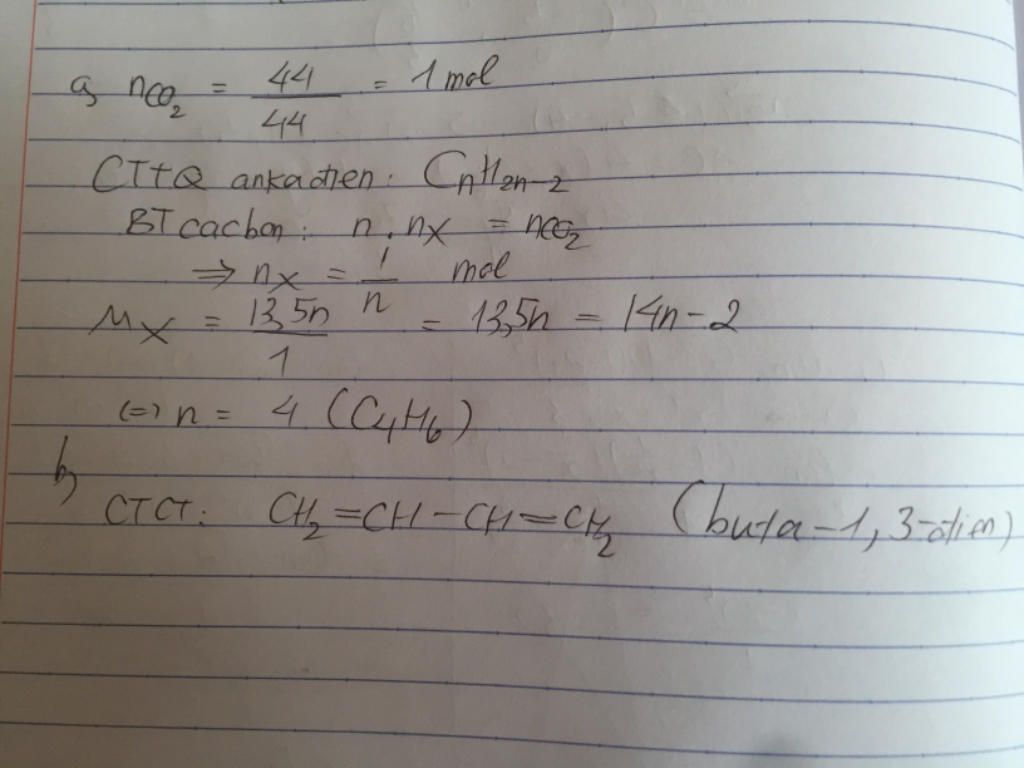 a, nCO₂ = 44/44 = 1 mol
CTTQ ankadien: CnH2n-2
BT cacbon: n . nX = nCO₂
⇒ nX = 1/n mol
MX = 13,5n/1 = 13,5n = 14n - 2
(=) n = 4 (C₄H₆)
b,
CTCT: CH₂=CH-CH=CH₂ (buta-1,3-dien)